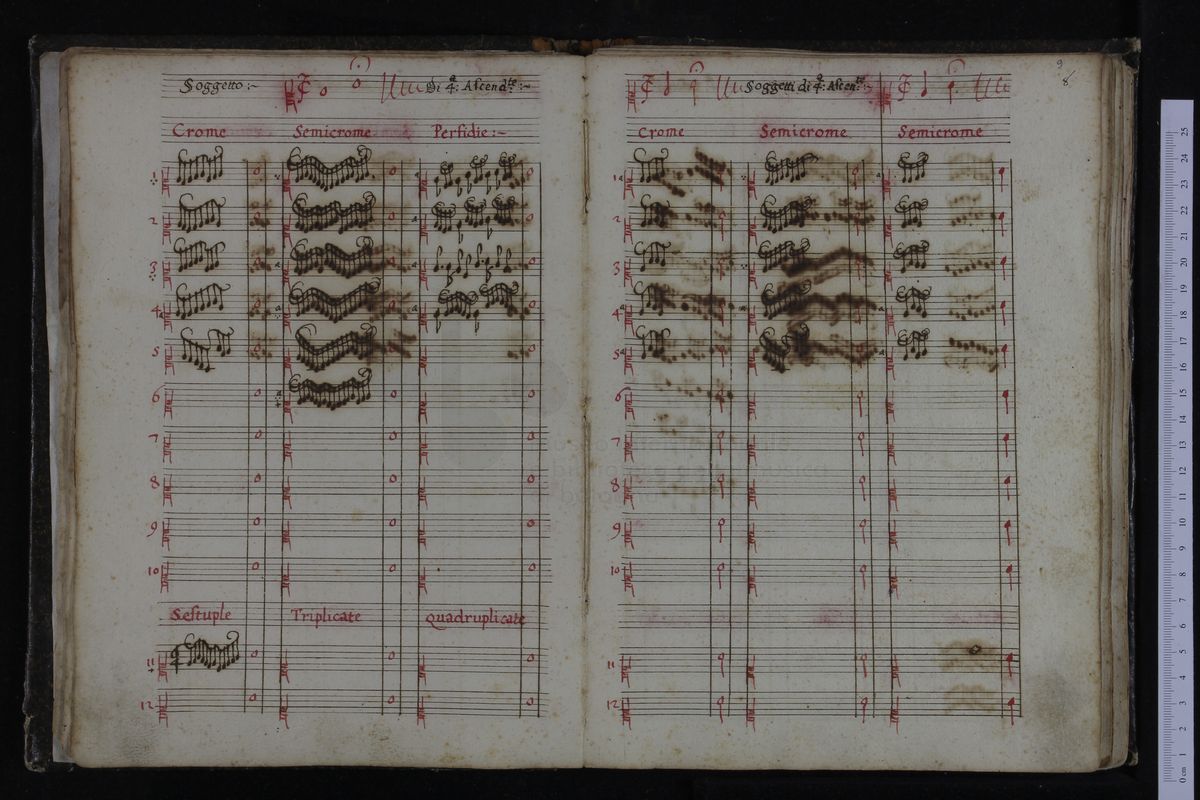 Soggetto :~ Di 4.ª Ascend.te :~
Crome Semicrome Perfidie :~
1
2
3
4
5
6
7
8
9
10
Sestuple Triplicate Quadruplicate
11
12
9
8
Soggetti di 4.ª Ascen.te :~
Crome Semicrome Semicrome
1
2
3
4
5
6
7
8
9
10
11
12
0 cm 1 2 3 4 5 6 7 8 9 10 11 12 13 14 15 16 17 18 19 20 21 22 23 24 25